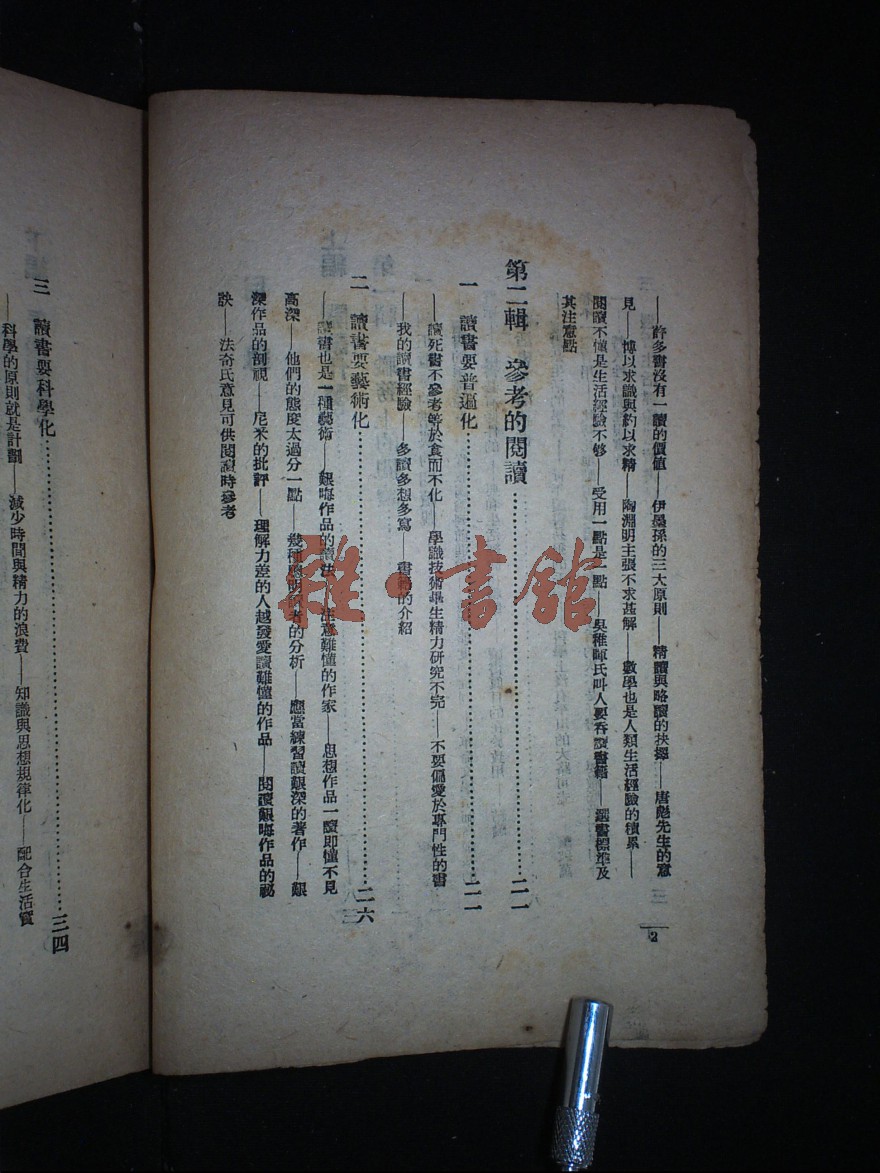 ——許多書沒有一讀的價值——伊墨孫的三大原則——精讀與略讀的抉擇——唐彪先生的意
見——博以求識與約以求精——陶淵明主張不求甚解——數學也是人類生活經驗的積累——
閱讀不懂是生活經驗不够——受用一點是一點——吳稚暉氏叫人要吞讀書籍——選書標準及
其注意點
第二輯 參考的閱讀……二一
一 讀書要普遍化……二一
——讀死書不參考等於食而不化——學識技術畢生精力研究不完——不要偏愛於專門性的書
——我的讀書經驗——多讀多想多寫——書籍的介紹
二 讀書要藝術化……二六
——讀書也是一種藝術——艱晦作品的讀法——注意難懂的作家——思想作品一讀即懂不見
高深——他們的態度太過分一點——幾種聰明讀者的分析——應當練習讀艱深的著作——艱
深作品的剖視——尼采的批評——理解力差的人越發愛讀難懂的作品——閱讀艱晦作品的祕
訣——法奇氏意見可供閱讀時參考
2
三 讀書要科學化……三四
——科學的原則就是計劃——減少時間與精力的浪費——知識與思想規律化——配合生活實
雜·書館